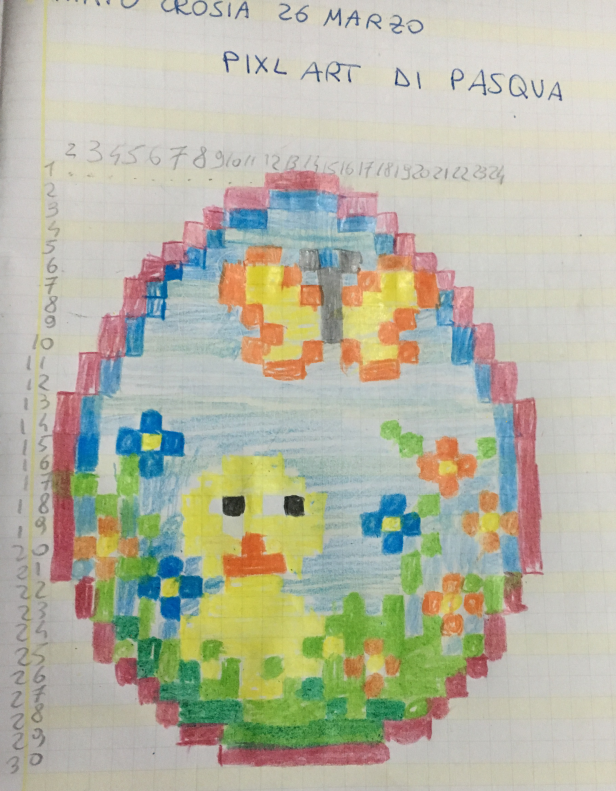 CROSIA 26 MARZO
PIXL ART DI PASQUA
2 3 4 5 6 7 8 9 10 11 12 13 14 15 16 17 18 19 20 21 22 23 24
1
2
3
4
5
6
7
8
9
10
11
12
13
14
15
16
17
18
19
20
21
22
23
24
25
26
27
28
29
30